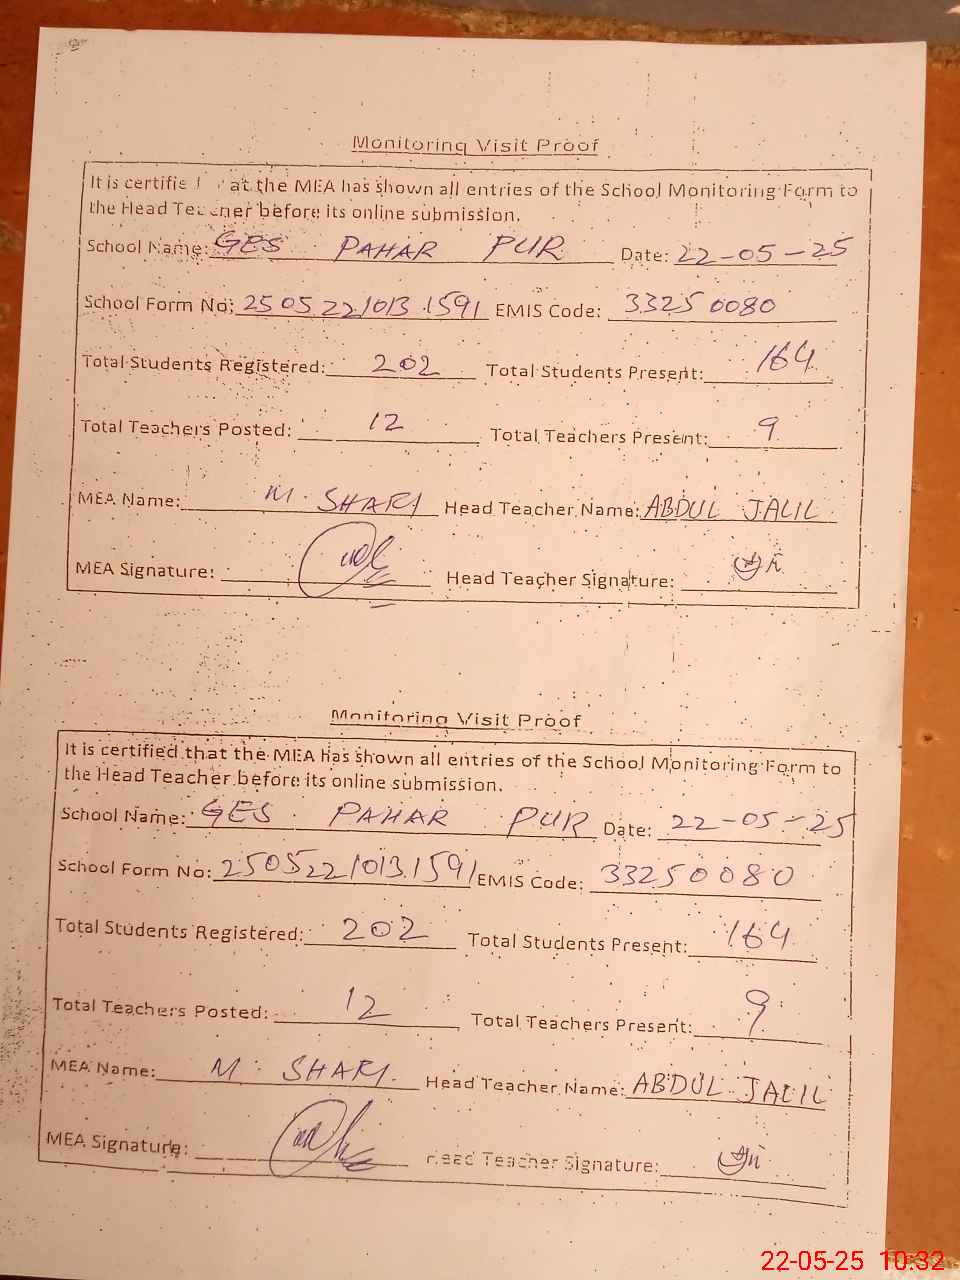 Monitoring Visit Proof
It is certifie at the MEA has shown all entries of the School Monitoring Form to
the Head Teacher before its online submission.
School Name: GES PAHAR PUR Date: 22-05-25
School Form No: 25052210131591 EMIS Code: 33250080
Total Students Registered: 202 Total Students Present: 164
Total Teachers Posted: 12 Total Teachers Present: 9
MEA Name: M. Head Teacher Name: ABDUL JALIL
MEA Signature: Head Teacher Signature:
Monitoring Visit Proof
It is certified that the MEA has shown all entries of the School Monitoring Form to
the Head Teacher before its online submission.
School Name: GES PAHAR PUR Date: 22-05-25
School Form No: 25052210131591 EMIS Code: 33250080
Total Students Registered: 202 Total Students Present: 164
Total Teachers Posted: 12 Total Teachers Present: 9
MEA Name: M. Head Teacher Name: ABDUL JALIL
MEA Signature: Head Teacher Signature:
22-05-25 10:32